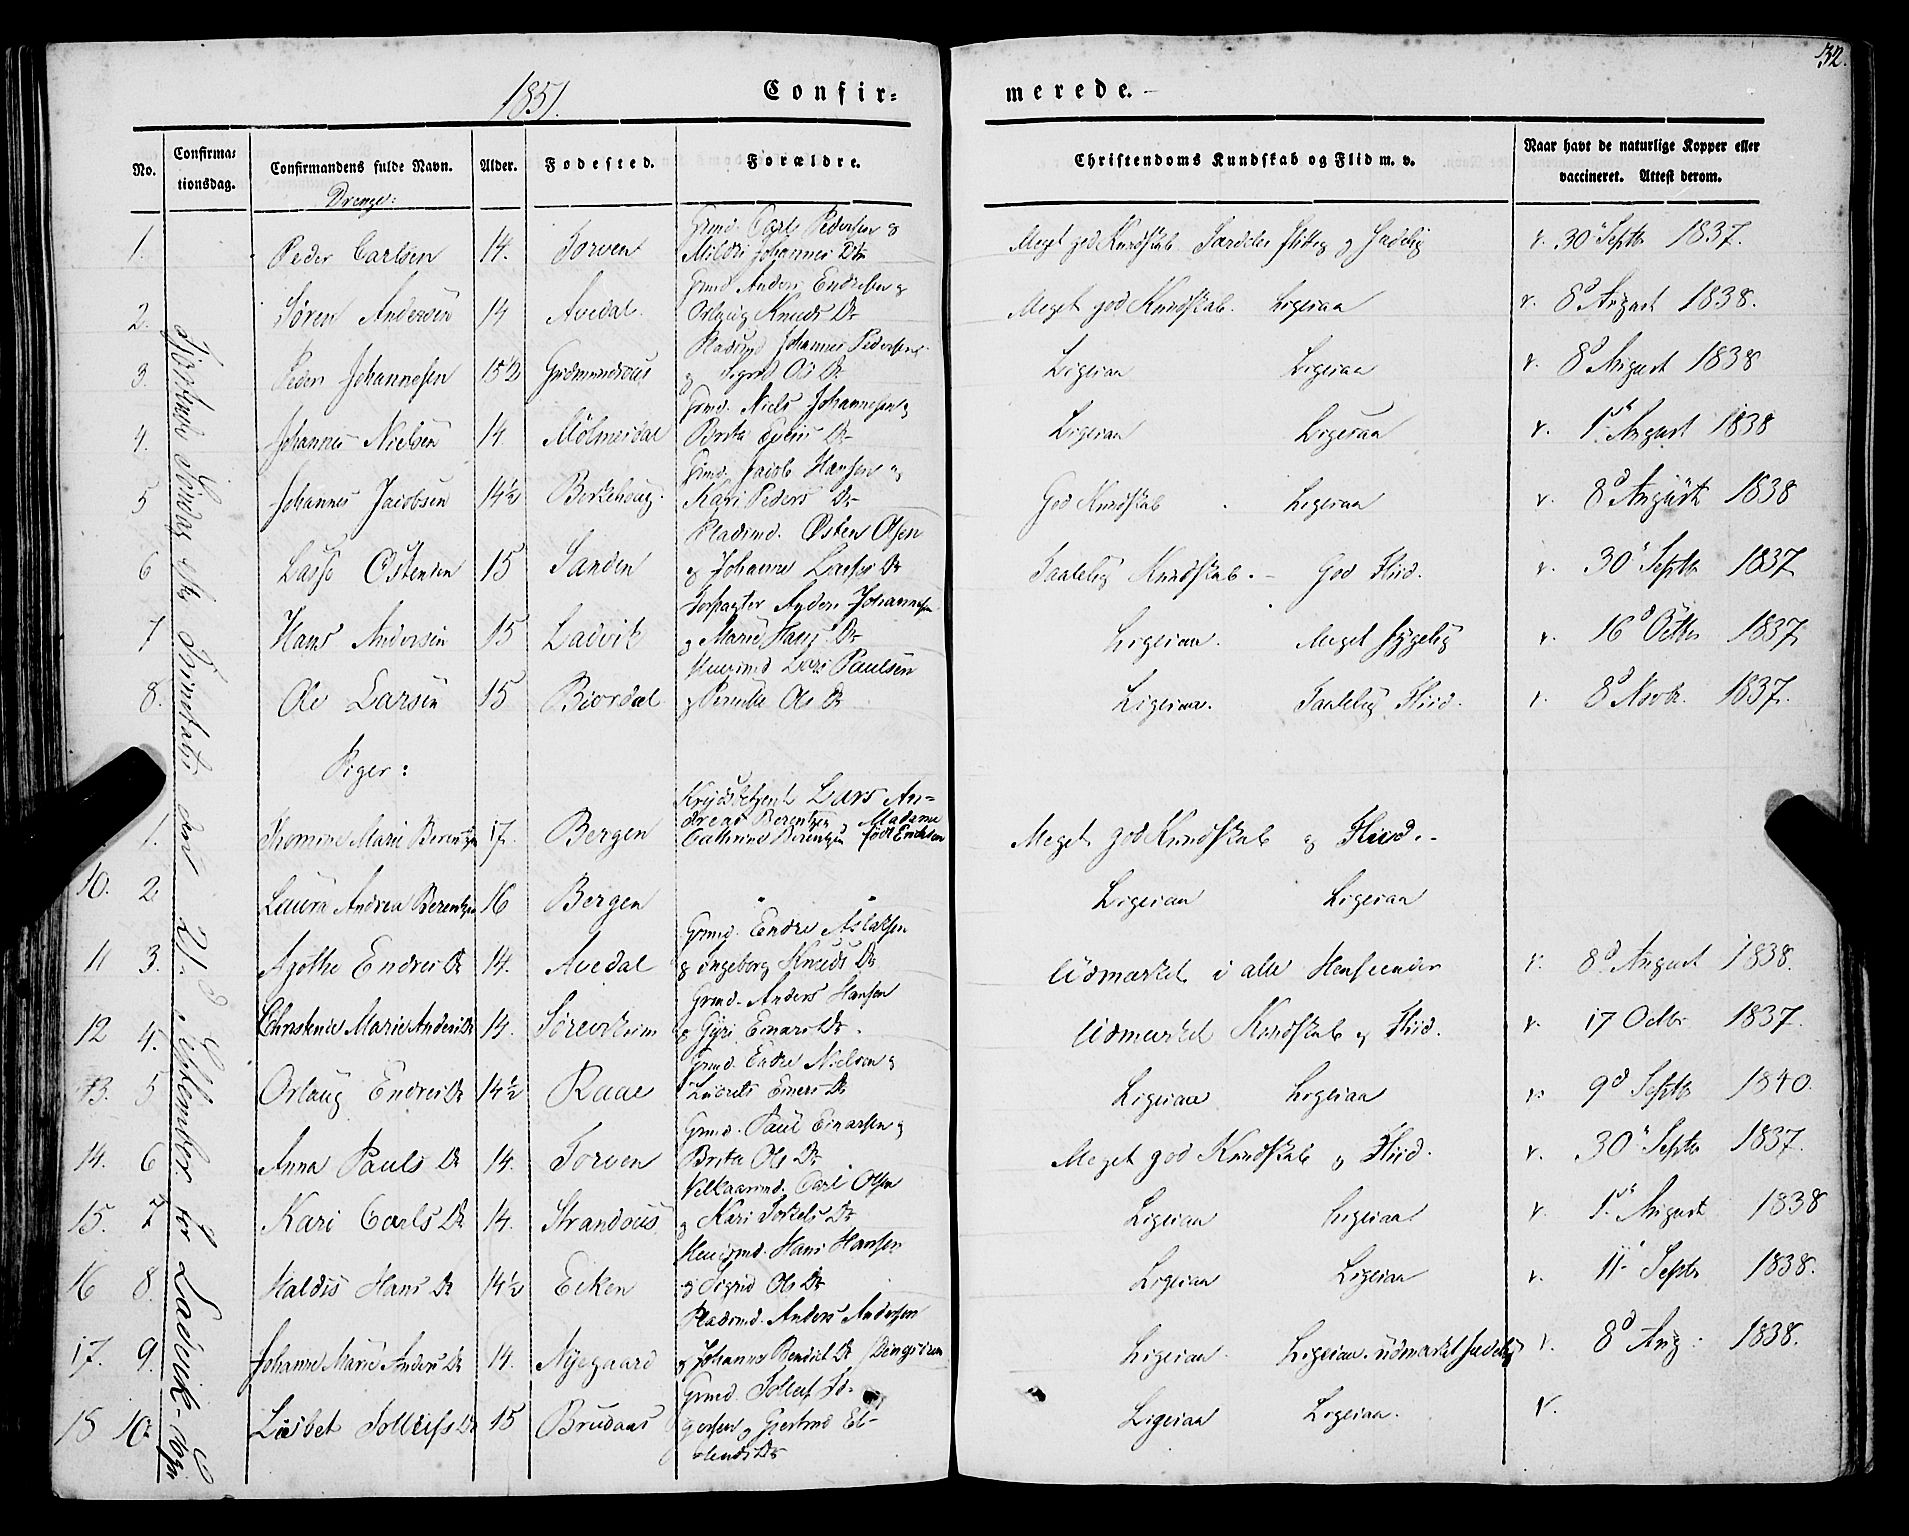 32.
1851.
Confir=
merede.
No.
Confirma=
tionsdag.
Confirmandens fulde Navn.
Alder.
Fødested.
Forældre.
Christendoms Kundskab og Flid m. v.
Naar havt de naturlige Kopper eller
vaccineret. Attest derom.
Drenge:
Søndag Trinitatis den 21. September for Ladvik-Sogn
Grmd. Carl Pedersen og
1. Peder Carlsen 14. Torven Mildri Johannes Dr Meget god Kundskab. Særdeles flittig og Sædelig v. 30 Septbr 1837.
Grmd Anders Endresen og
2. Søren Andersen 14 Avedal. Orlaug Knuds Dr Meget god Kundskab. Ligesaa v. 8d August 1838.
Pladsmd Johannes Pedersen
3. Peder Johannesen 15½ og Sigrid Ols Dr Ligesaa Ligesaa v. 8d August 1838
Grmd. Niels Johannesen og
4. Johannes Nielsen 14. Brita Dr Ligesaa Ligesaa v. 1. August 1838
Grmd. Jacob Hansen og
5 Johannes Jacobsen 14½ Kari Peders Dr God Kundskab Ligesaa v. 8d August 1838
Pladsmd. Østen Olsen
6 Lasse Østensen 15 Sanden og Johanne Lasses Dr Taalelig Kundskab. - God Flid. v. 30 Septbr 1837
Forpagter Anders Johannesen
7 Hans Andersen 15 Ladvik og Marie Hans Dr Ligesaa. Meget v. 16d Octbr 1837
Huusmd Lars Paulsen
8. Ole Larsen 15 Biordal og Pernille Ols Dr Ligesaa. Taalelig Flid. v. 8d Novbr. 1837.
Piger:
Lars An=
dreas Berentzen og Madame
1. Thomine Marie Berentzen 17. Bergen Cathrine Berentzen født Eriksen Meget god Kundskab og Flid. -
10. 2 Laura Andrea Berentzen 16 Bergen " " Ligesaa Ligesaa
Grmd. Endre Aslaksen
11 3. Agothe Endres Dr 14. Avedal og Ingeborg Knuds Dr Udmærket i alle Henseender v. 8d August 1838.
Grmd. Anders Hansen
12 4. Christense Marie Anders Dr 14. og Gyri Einars Dr. Udmærket Kundskab og Flid. v. 17 Octbr 1837.
Grmd. Endre Nielsen og
13. 5 Orlaug Endres Dr 14½ Raae Dr Ligesaa Ligesaa v. 9d Septbr 1840.
Grmd. Paul Einarsen og
14. 6 Anna Pauls Dr 14. Torven Brita Ols Dr Meget god Kundskab og Flid. v. 30 Septbr 1837.
Carl Olsen
15. 7 Kari Carls Dr 14. og Kari Dr Ligesaa Ligesaa v. 1. August 1838
Huusmd. Hans Hansen
16 8. Maldis Hans Dr 14½ Eiken og Sigrid Ols Dr Ligesaa Ligesaa v. 11. Septbr 1838.
Pladsmd. Anders Andersen
17. 9. Johanne Marie Anders Dr 14. Nyegaard og Johanne Bendict Dr Ligesaa. Ligesaa. udmærket sædelig v. 8d Aug: 1838.
Grmd. Tollef To-
18 10. Lisbet Tollefs Dr 15 Brudaas og Gjertrud El- Ligesaa Ligesaa. v.
lends Dr